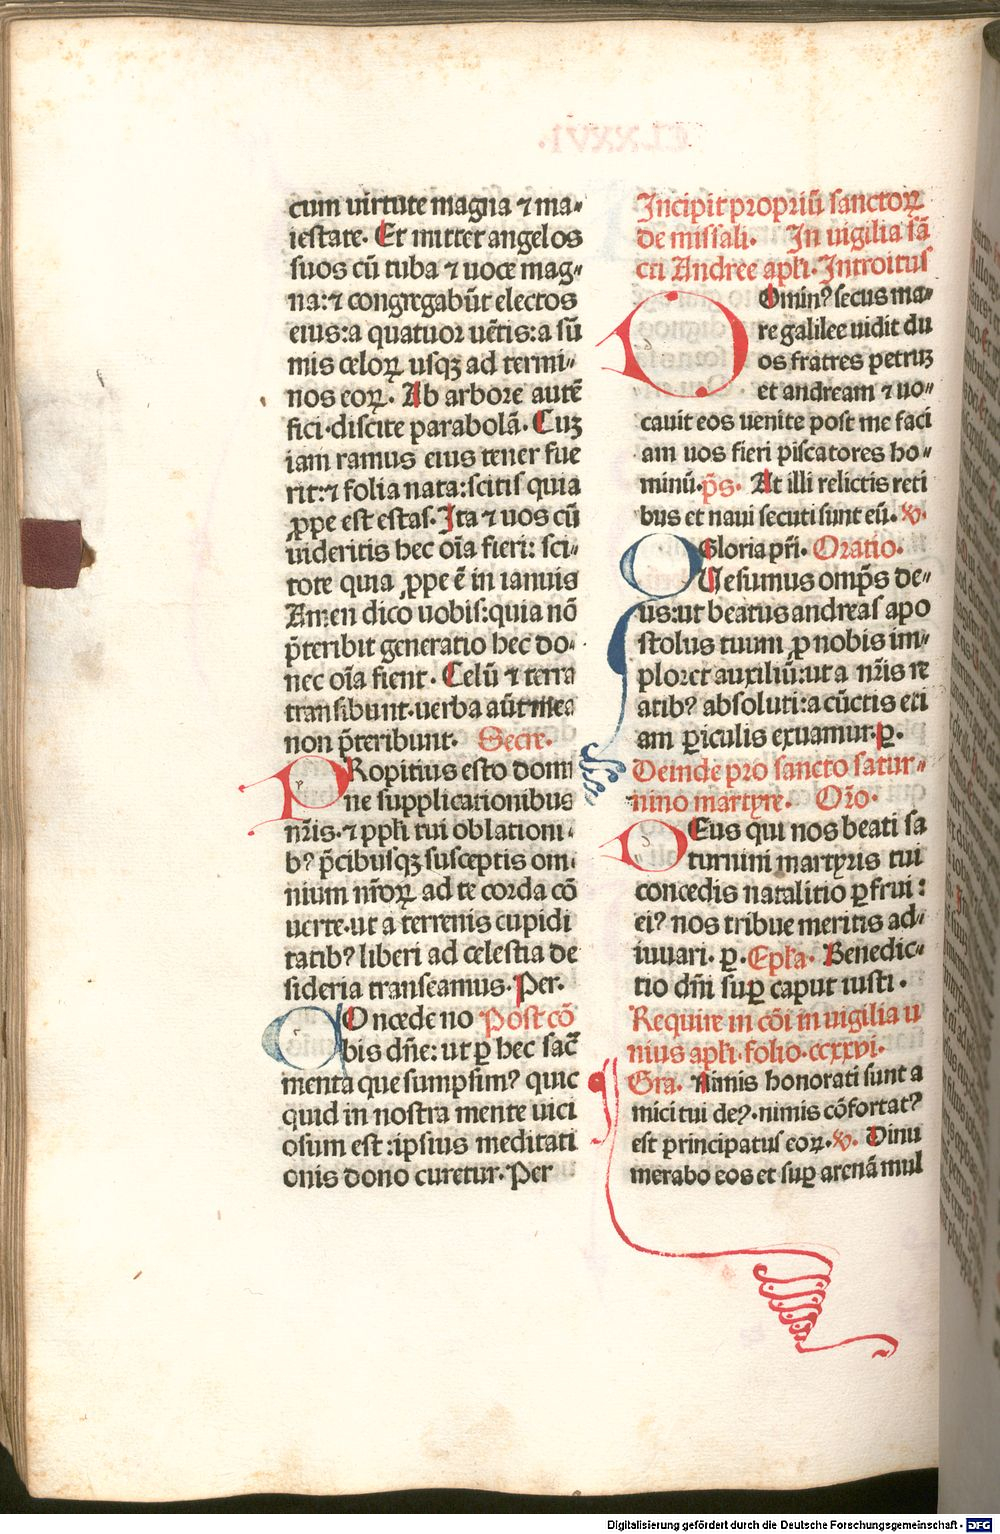 cum uirtute magna ⁊ ma-
iestate. Et mittet angelos
suos cū tuba ⁊ uoce mag-
na: ⁊ congregabūt electos
eius: a quatuor uētis: a sū
mis celoꝝ usqꝫ ad termi-
nos eoꝝ. Ab arbore autē
fici. discite parabolā. Cuꝫ
iam ramus eius tener fue
rit: ⁊ folia nata: scitis quia
ꝓpe est estas. Ita ⁊ uos cū
uideritis hec oīa fieri: sci-
tote quia ꝓpe ē in ianuis
Amen dico uobis: quia nō
p̄teribit generatio hec do-
nec oīa fient. Celū ⁊ terra
transibunt. uerba aūt mea
non p̄teribunt. Secre.
PRopitius esto domi
ne supplicationibus
nr̄is. ⁊ ppłi tui oblationi
bꝰ p̄cibusqꝫ susceptis om
nium nr̄oꝝ ad te corda cō
uerte. ut a terrenis cupidi
tatibꝰ liberi ad celestia de
sideria transeamus. Per.
COncede no Post cō
bis dn̄e: ut ꝑ hec sac̄
menta que sumpsimꝰ quic
quid in nostra mente uici
osum est: ipsius meditati
onis dono curetur. Per
Incipit propriū sanctoꝝ
de missali. In uigilia sā
cti Andree apłi. Introitus
DOminꝰ secus ma-
re galilee uidit du
os fratres petruꝫ
et andream ⁊ uo-
cauit eos uenite post me faci
am uos fieri piscatores ho-
minū. p̄s. At illi relictis reti
bus et naui secuti sunt eū. ℣.
Gloria pr̄i. Oratio.
QUesumus omp̄s de-
us: ut beatus andreas apo
stolus tuum ꝓ nobis im-
ploret auxiliū: ut a nr̄is re
atibꝰ absoluti: a cūctis eti
am ꝑiculis exuamur. ꝑ.
Deinde pro sancto satur-
nino martyre. Oro.
DEus qui nos beati sa
turnini martyris tui
concedis natalitio ꝑfrui:
eiꝰ nos tribue meritis ad-
iuuari. ꝑ. Epła. Benedic-
tio dn̄i suꝑ caput iusti.
Require in cōi in uigilia u
nius apłi. folio. ccxxvi.
Gra. Nimis honorati sunt a
mici tui deꝰ. nimis cōfortatꝰ
est principatus eoꝝ. ℣. Dinu
merabo eos et suꝑ arenā mul
Digitalisierung gefördert durch die Deutsche Forschungsgemeinschaft - DFG